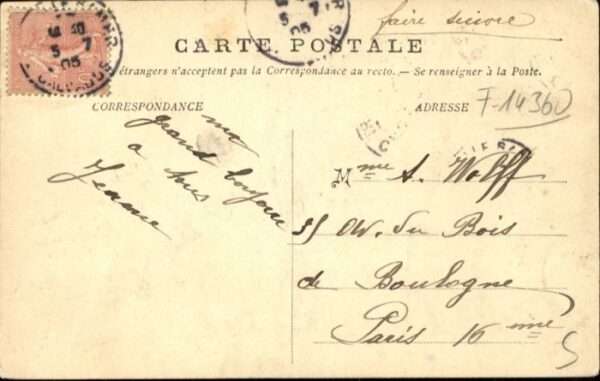 faire suivre
CARTE POSTALE
étrangers n'acceptent pas la Correspondance au recto. — Se renseigner à la Poste.
CORRESPONDANCE
ADRESSE
F-14360
grand bonjour
à tous
Jeanne
Mme A. Wolff
35 Av. du Bois
de Boulogne
Paris 16 ème
5-7
05
CALVADOS